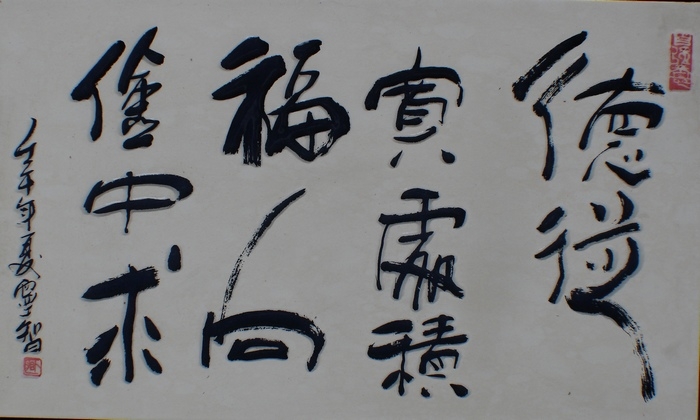 德從
寬處積
福向
儉中求
壬午年夏智